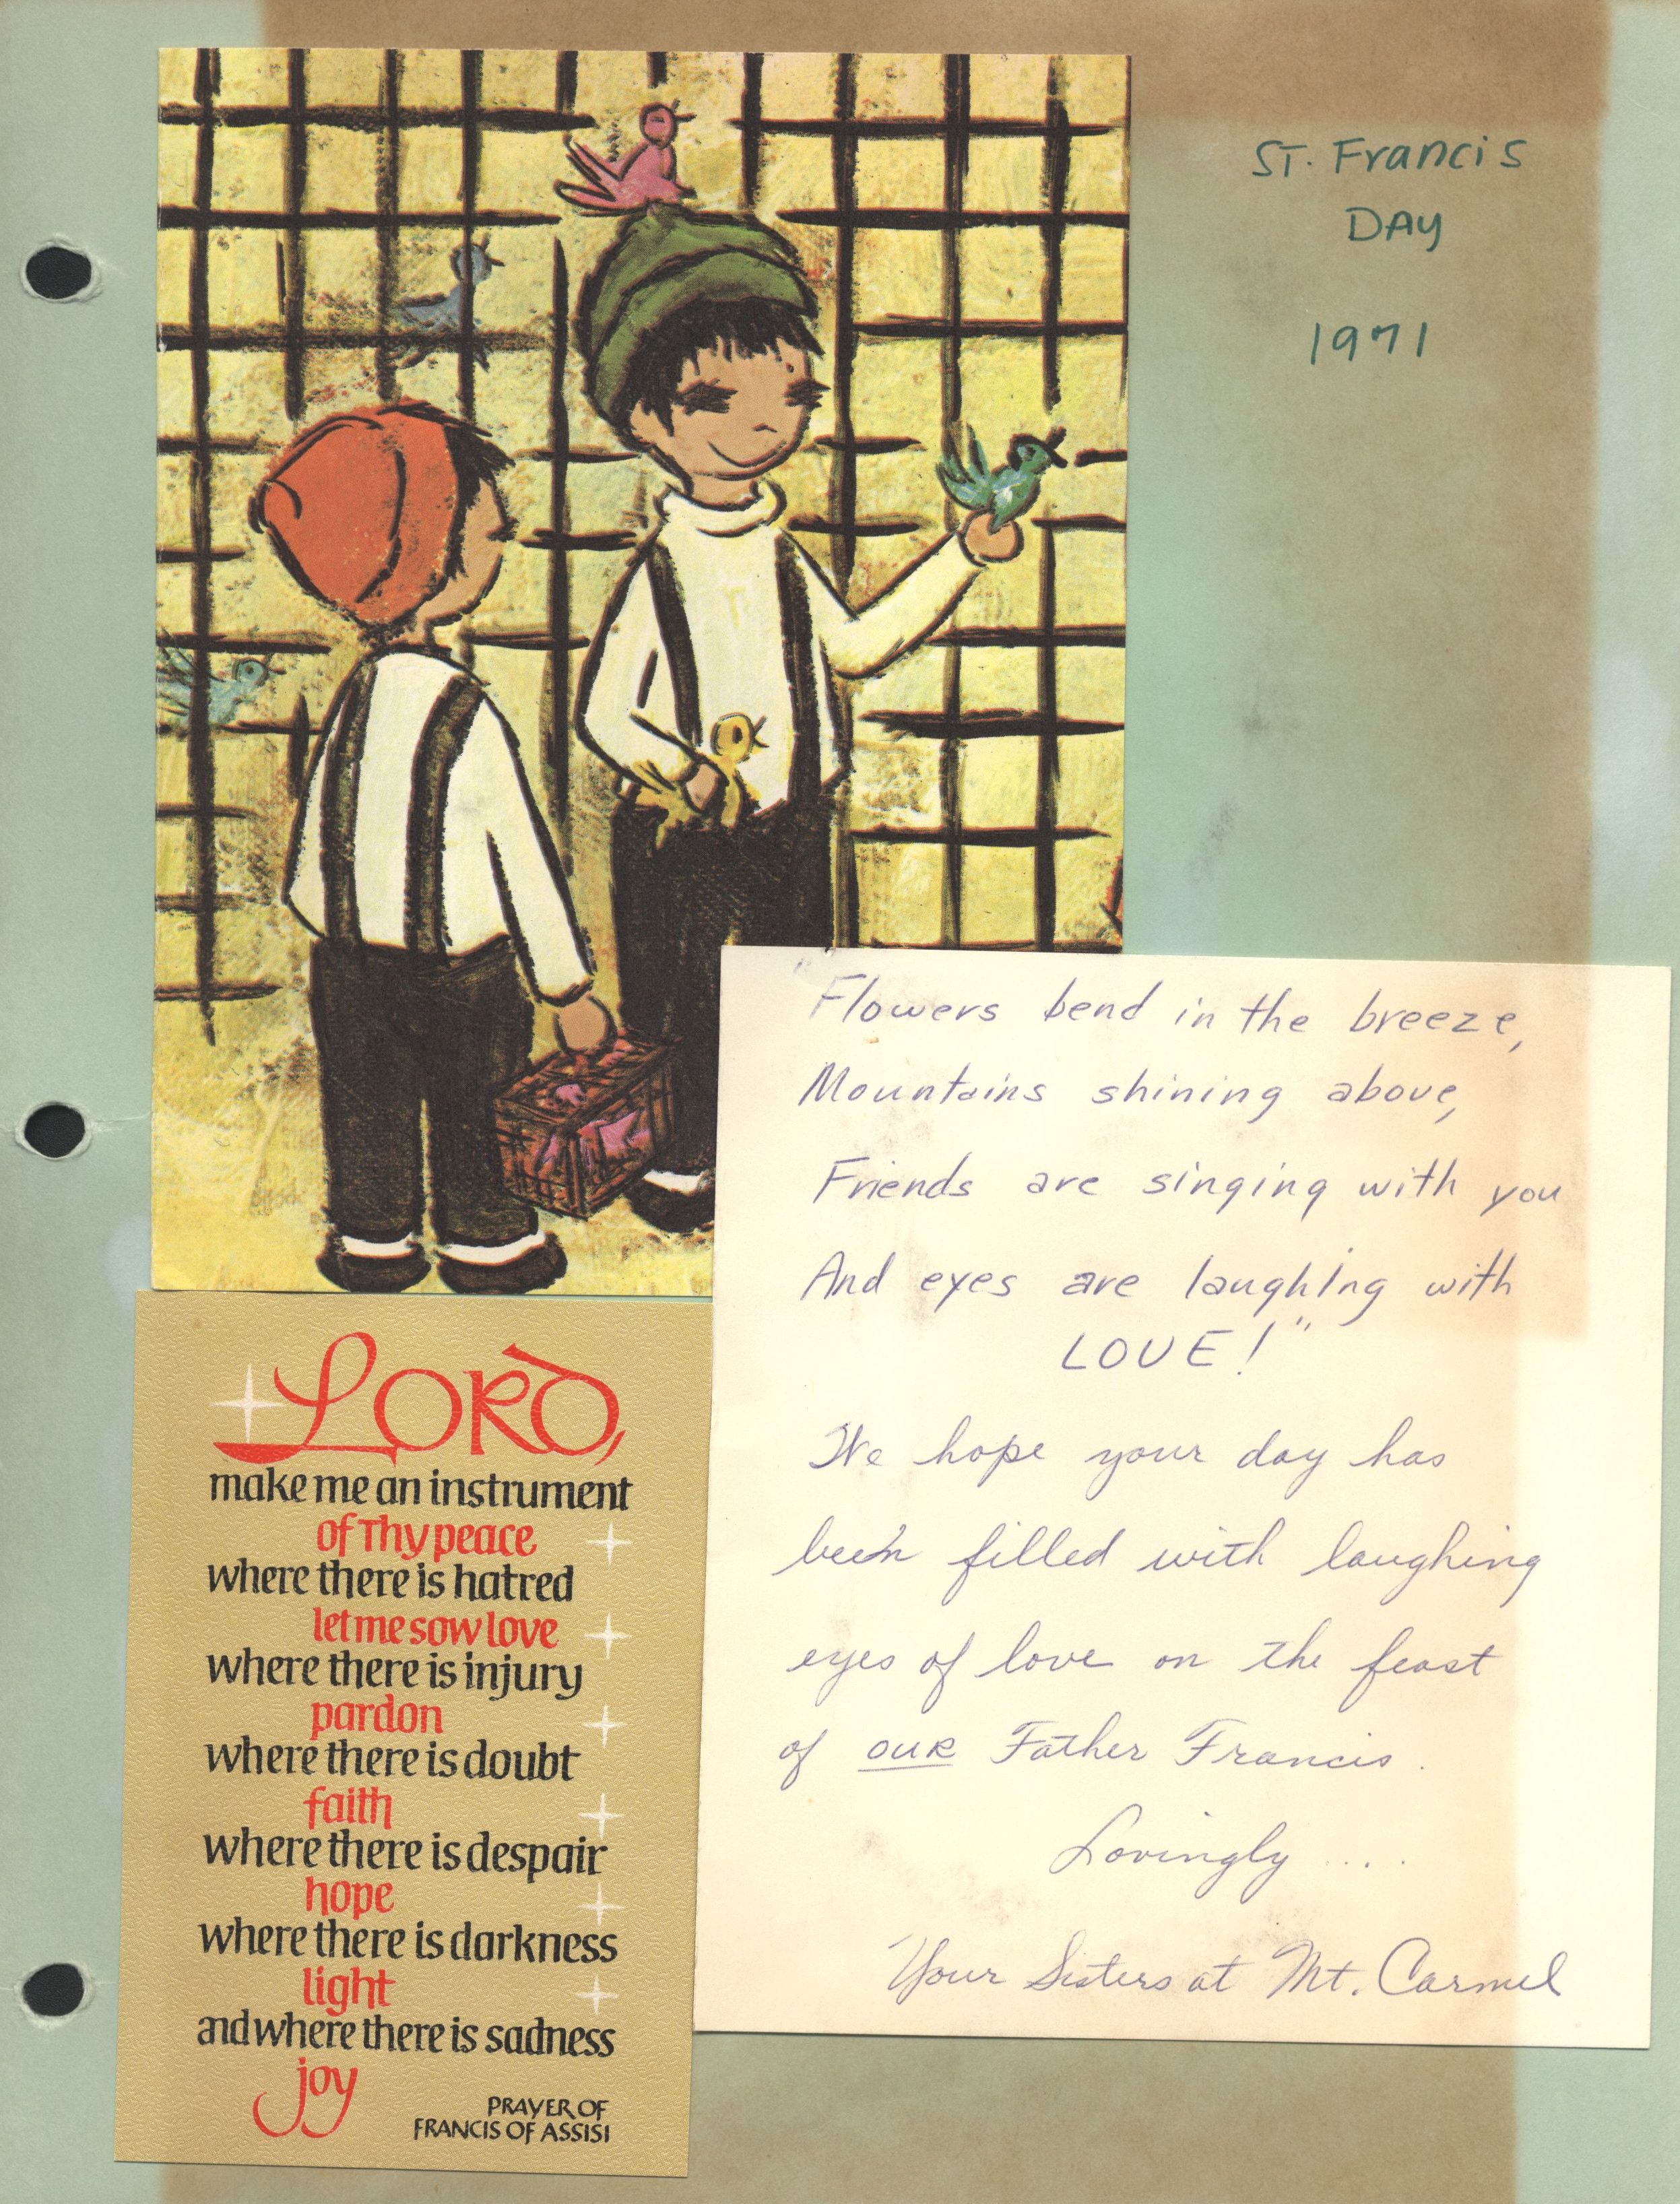 ST. Francis
DAY
1971
"Flowers bend in the breeze,
Mountains shining above,
Friends are singing with you
And eyes are laughing with
LOVE!"
We hope your day has
been filled with laughing
eyes of love on the feast
of OUR Father Francis.
Lovingly ....
Your Sisters at Mt. Carmel
LORD,
make me an instrument
of Thy peace
where there is hatred
let me sow love
where there is injury
pardon
where there is doubt
faith
where there is despair
hope
where there is darkness
light
and where there is sadness
joy
PRAYER OF
FRANCIS OF ASSISI